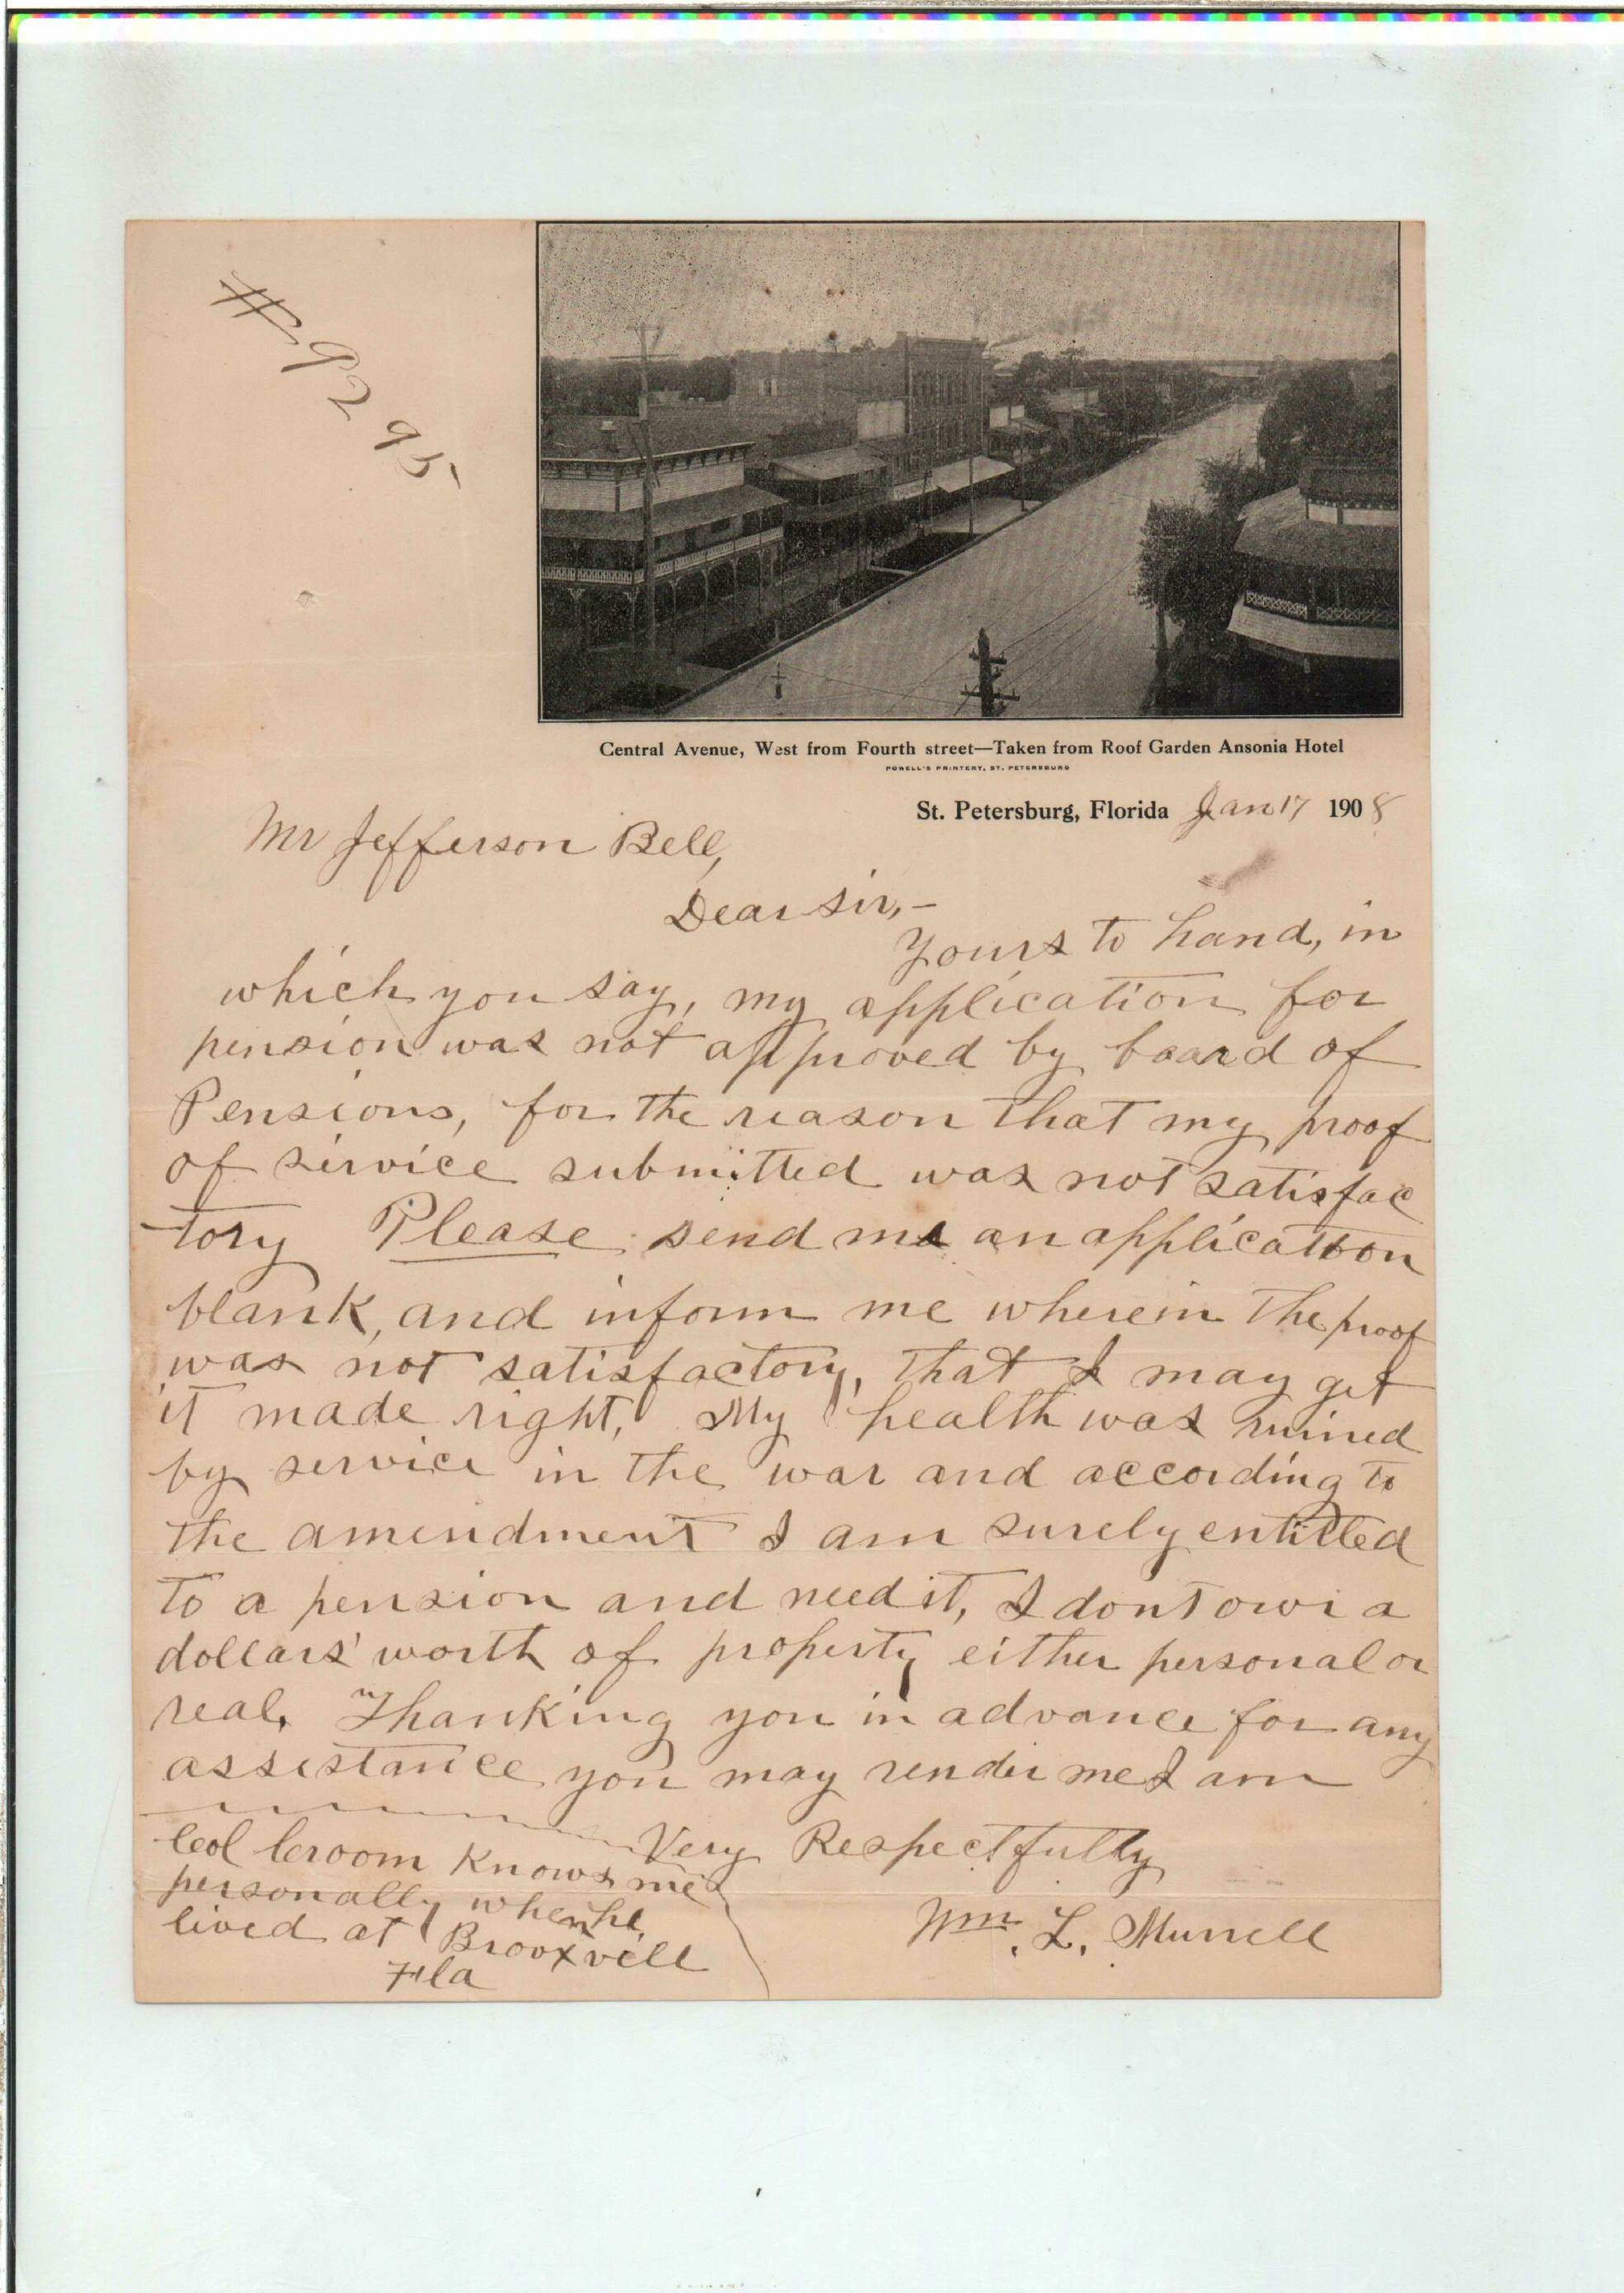 # 9295
Central Avenue, West from Fourth street—Taken from Roof Garden Ansonia Hotel
POWELL'S PRINTERY, ST. PETERSBURG
St. Petersburg, Florida Jan 17 1908
Mr Jefferson Bell,
Dear sir,-
Yours to hand, in
which you say, my application for
pension was not approved by board of
Pensions, for the reason that my proof
of service submitted was not satisfac
tory Please send me an application
blank, and inform me wherein the proof
was not satisfactory, that I may get
it made right, My health was ruined
by service in the war and according to
the amendment I am surely entitled
to a pension and need it, I dont own a
dollars' worth of property either personal or
real. Thanking you in advance for any
assistance you may render me I am
Very Respectfully
Wm. L. Murrell
Col Croom Knows me
personally when he
lived at Brooxvill
Fla